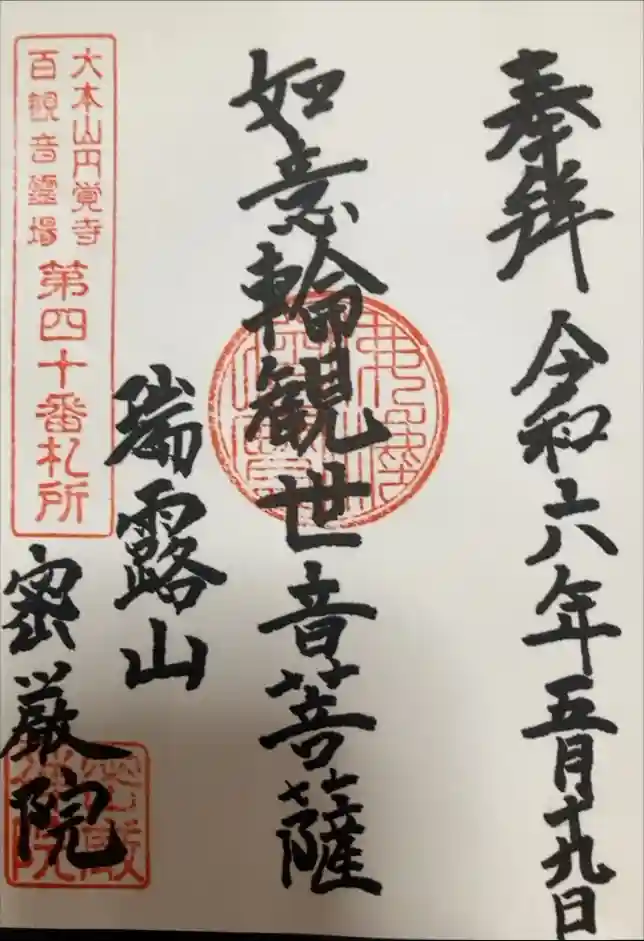 奉拝 令和六年五月十九日
如意輪観世音菩薩
瑞露山
密厳院
大本山円覚寺
百観音霊場
第四十番札所
密厳
院